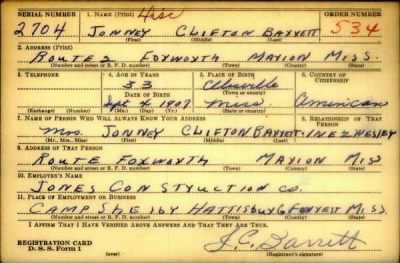 SERIAL NUMBER 1. NAME (Print) ORDER NUMBER
2704 JONNEY CLIFTON BARRETT 534
(First) (Middle) (Last)
2. ADDRESS (Print)
ROUTE 2 FOXWORTH MARION MISS.
(Number and street or R. F. D. number) (Town) (County) (State)
3. TELEPHONE 4. AGE IN YEARS 5. PLACE OF BIRTH 6. COUNTRY OF CITIZENSHIP
33
DATE OF BIRTH (Town or county)
Sept 4 1907 Miss. American
(Exchange) (Number) (Mo.) (Day) (Yr.) (State or country)
7. NAME OF PERSON WHO WILL ALWAYS KNOW YOUR ADDRESS 8. RELATIONSHIP OF THAT PERSON
Mrs. JONNEY CLIFTON BARRETT INEZ WESLEY
(Mr., Mrs., Miss) (First) (Middle) (Last)
9. ADDRESS OF THAT PERSON
ROUTE FOXWORTH MARION MISS
(Number and street or R. F. D. number) (Town) (County) (State)
10. EMPLOYER'S NAME
JONES CONSTRUCTION CO.
11. PLACE OF EMPLOYMENT OR BUSINESS
CAMP SHELBY HATTISBURG FORREST MISS.
(Number and street or R. F. D. number) (Town) (County) (State)
I AFFIRM THAT I HAVE VERIFIED ABOVE ANSWERS AND THAT THEY ARE TRUE.
REGISTRATION CARD
D. S. S. Form 1
J. C. Barrett
(Registrant's signature)